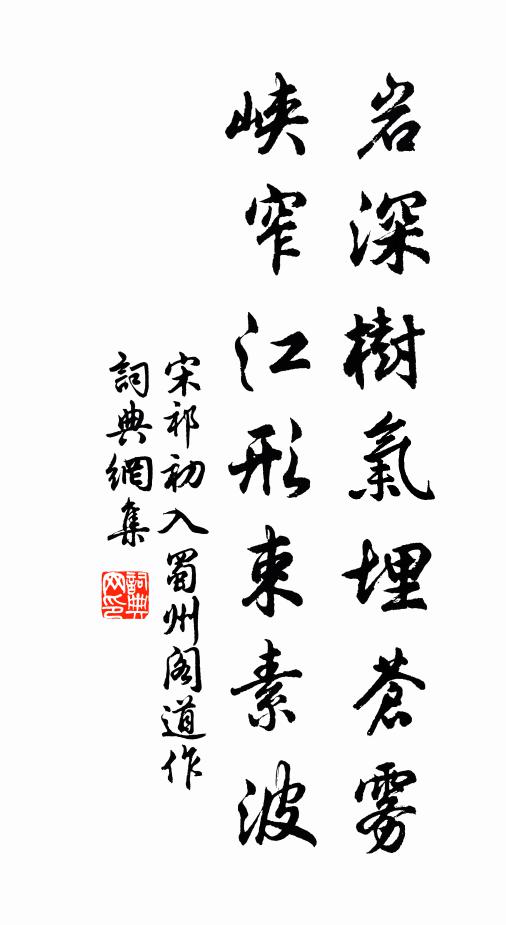 岩深樹氣埋蒼雾
峽窄江形束素波
宋祁初入蜀州阁道作
詞典網集
詞典网印